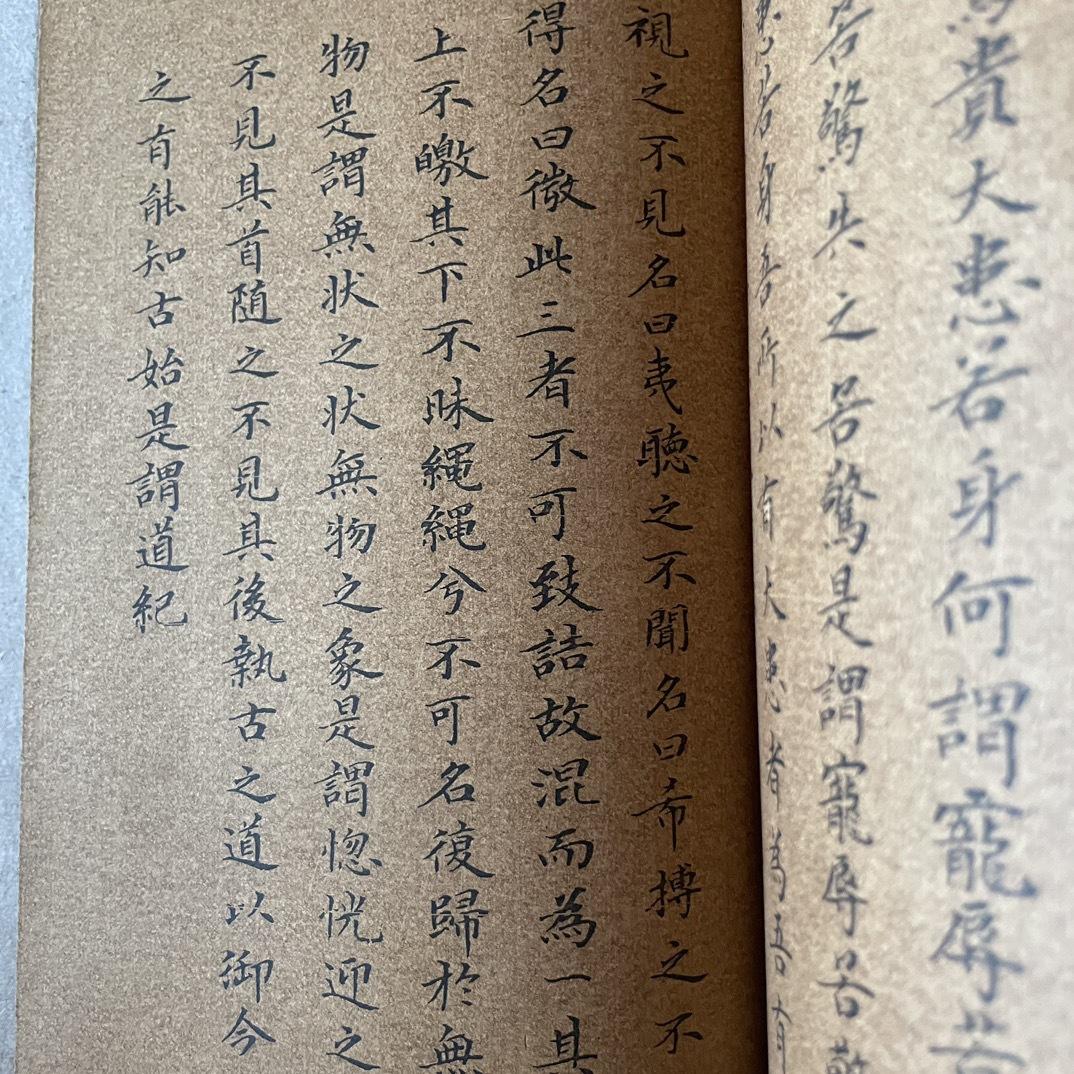 貴大患若身何謂寵辱若
若驚失之若驚是謂寵辱若驚
患若身吾所以有大患者為吾有
視之不見名曰夷聽之不聞名曰希搏之不
得名曰微此三者不可致詰故混而為一其
上不皦其下不昧縄縄兮不可名復歸於無
物是謂無状之状無物之象是謂惚恍迎之
不見其首随之不見其後執古之道以御今
之有能知古始是謂道紀